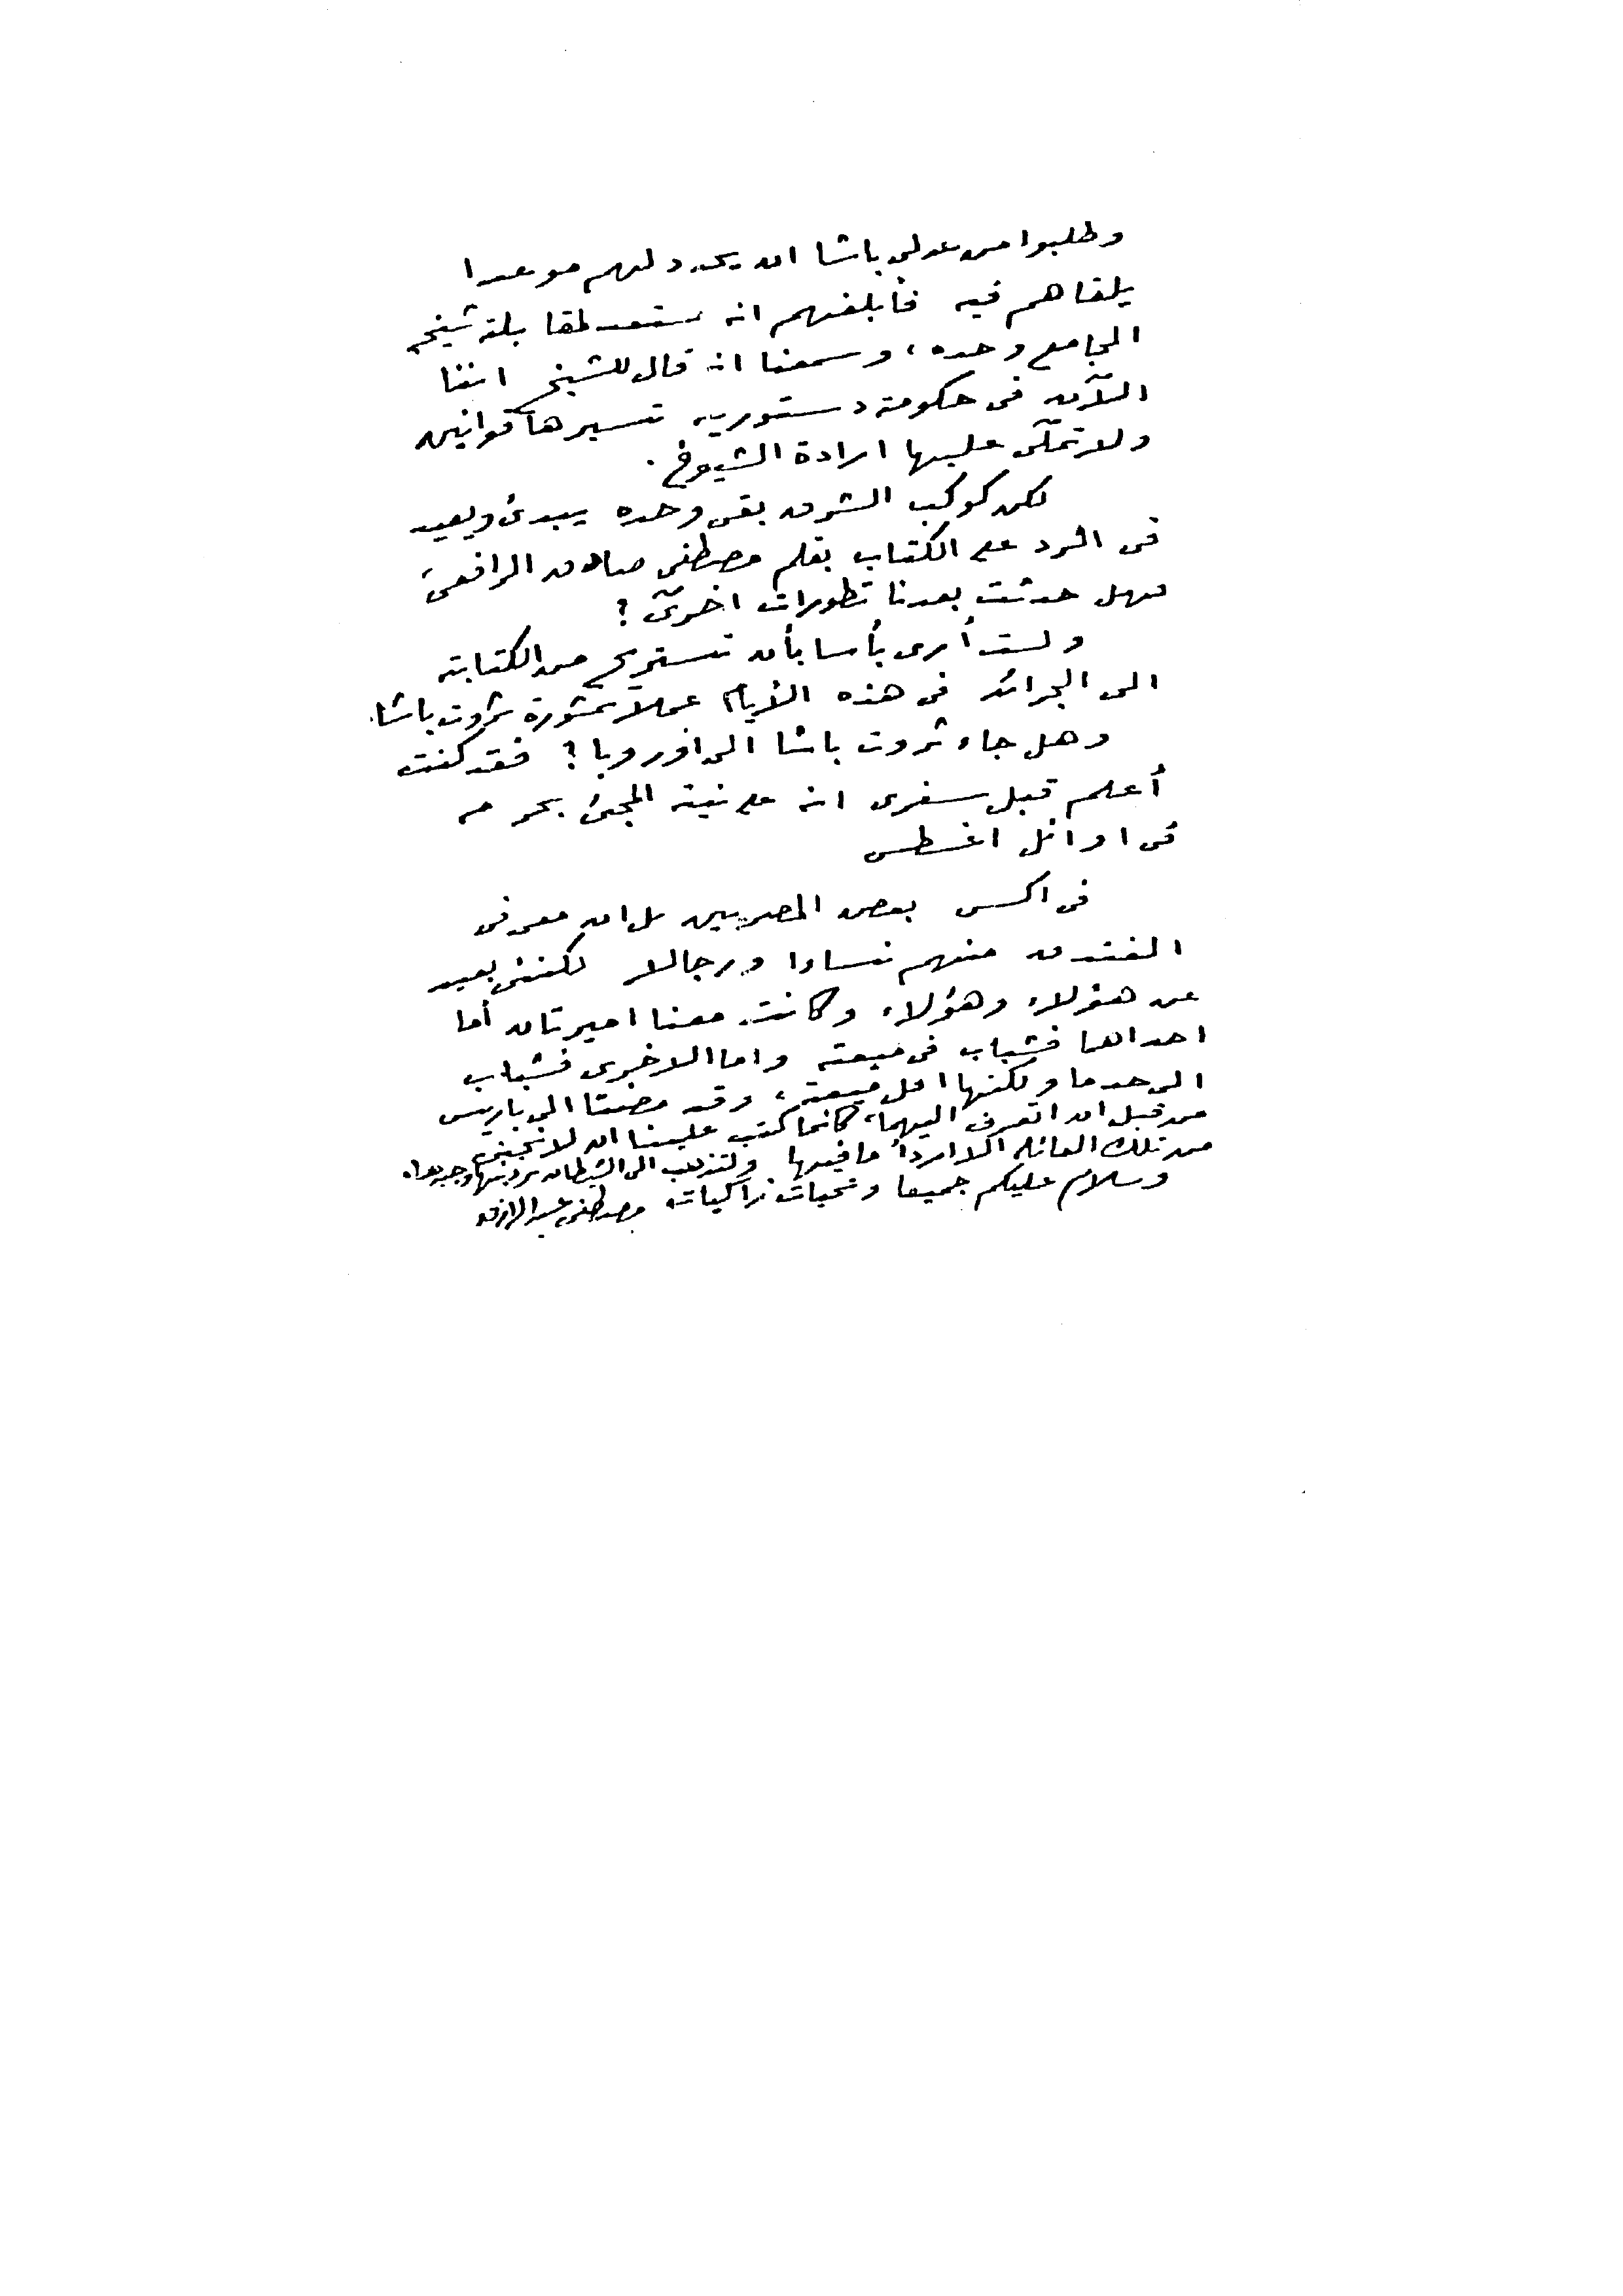 وطلبوا من عدلى باشا ان يحدد لهم موعدا
يلقاهم فيه فأبلغهم انه مستعد لمقابلة شيخ
الجامع وحده، وسمعنا انه قال للشيخ اننا
الآن فى حكومة دستورية تسيرها قوانين
ولا تملى عليها ارادة الشيوخ.
لكن كوكب الشرق بقى وحده يبدئ ويعيد
فى الرد على الكتاب بقلم مصطفى صادق الرافعى
فهل حدثت بعدنا تطورات اخرى ؟
ولست أرى بأسا بأن تستريح من الكتابة
الى الجرائد فى هذه الأيام عملا بمشورة ثروت باشا.
وهل جاء ثروت باشا الى اوروبا ؟ فقد كنت
أعلم قبل سفرى انه على نية المجئ بحرمه
فى اوائل اغسطس
فى اكس بعض المصريين بل ان معى فى
الفندق منهم نساءا ورجالا لكننى بعيد
عن هؤلاء وهؤلاء وكانت معنا اميرتان أما
احداهما فشباب فى ميعته واما الاخرى فشباب
الى حد ما ولكنها اقل ميعة، وقد مضتا الى باريس
من قبل ان اتعرف اليهما، كأنما كتب علينا ان لا نجتنى
من تلك العائلة الا اردأ ما فيها ولتذهب الى الشيطان بردئيها وجيدها.
وسلام عليكم جميعا وتحيات زاكيات مصطفى عبد الرازق